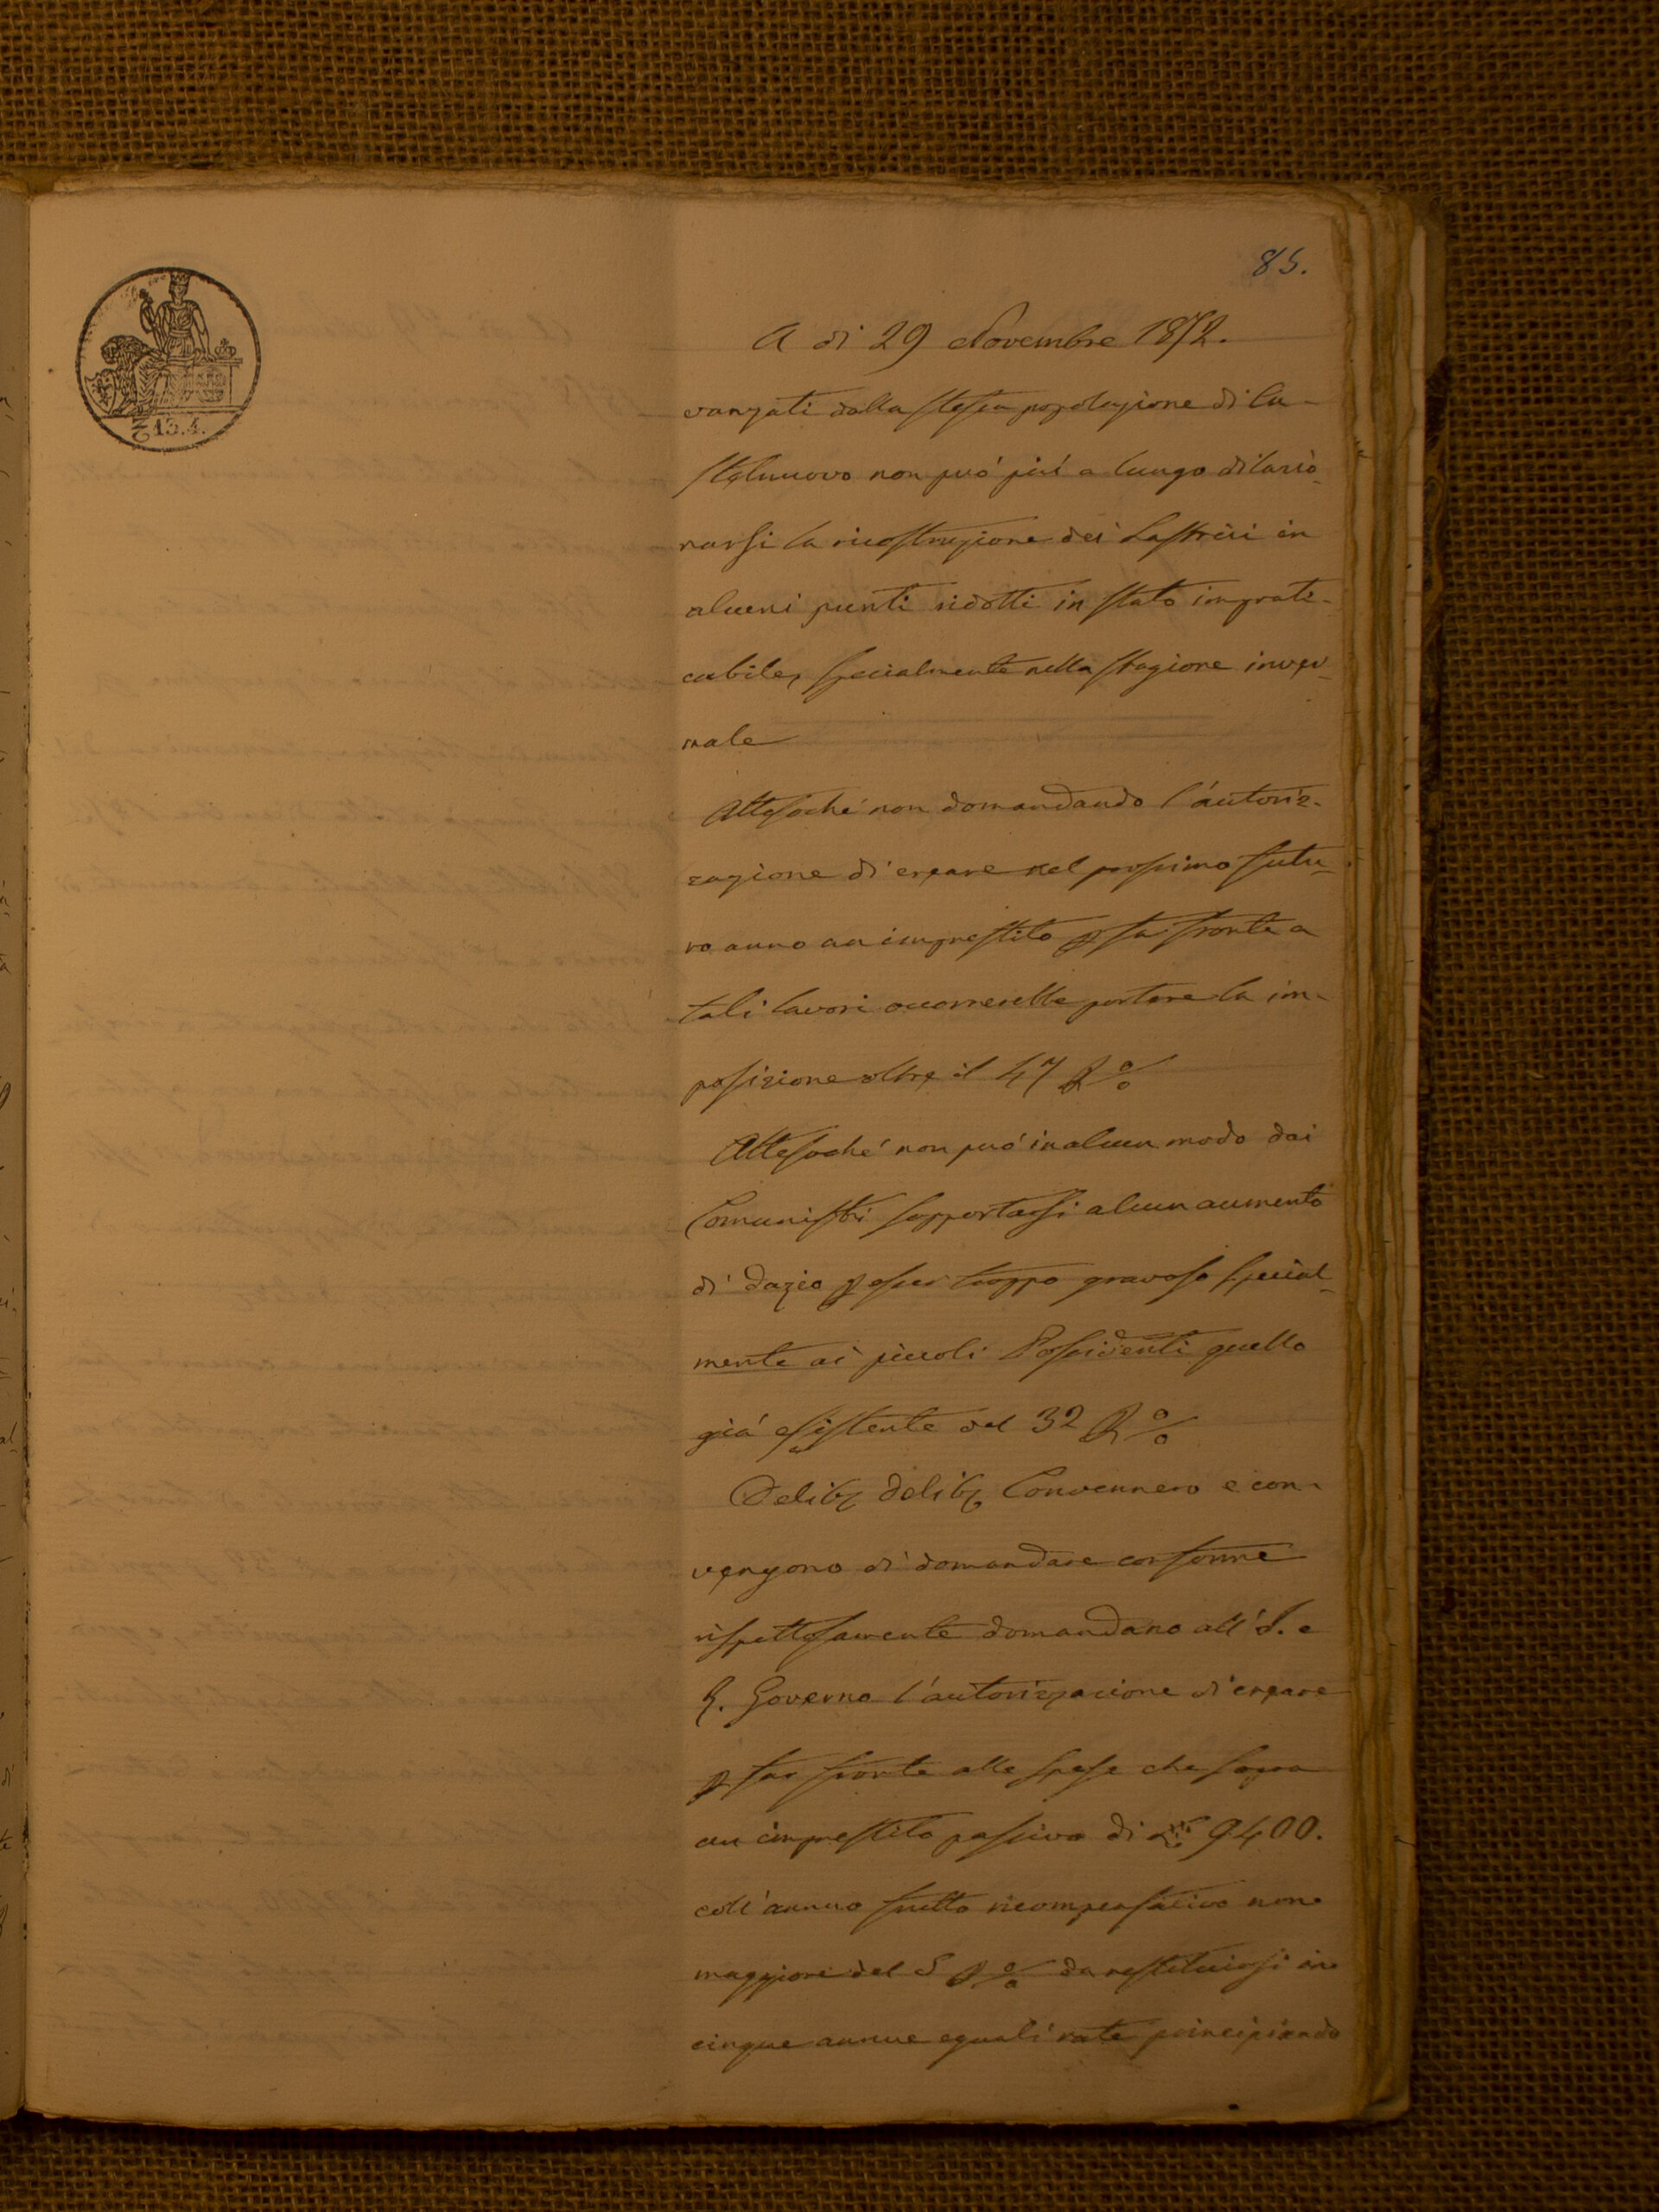 85.
A di 29 Novembre 1852.
vanzati dalla stessa popolazione di Ca-
stelnuovo non può più a lungo dilazio-
narsi la ricostruzione dei Lastrici in
alcuni punti ridotti in stato imprati-
cabile, specialmente nella stagione inver-
nale
Attesoché non domandando l'autoriz-
zazione di creare nel prossimo futu-
ro anno un imprestito p far fronte a
tali lavori occorrerebbe portare la im-
posizione oltre il 47 p %
Attesoché non può in alcun modo dai
Comunisti sopportarsi alcun aumento
di Dazio p esser troppo gravoso special-
mente ai piccoli Possidenti quello
già esistente del 32 p %
Delib delib Convennero e con-
vengono di domandare conforme
rispettosamente domandano all'I. e
R. Governo l'autorizzazione di creare
p far fronte alle spese che sopra
un imprestito passivo di 9400.
coll'annuo frutto ricompensativo non
maggiore del 5 p % da restituirsi in
cinque annue eguali rate principiando
13.4.